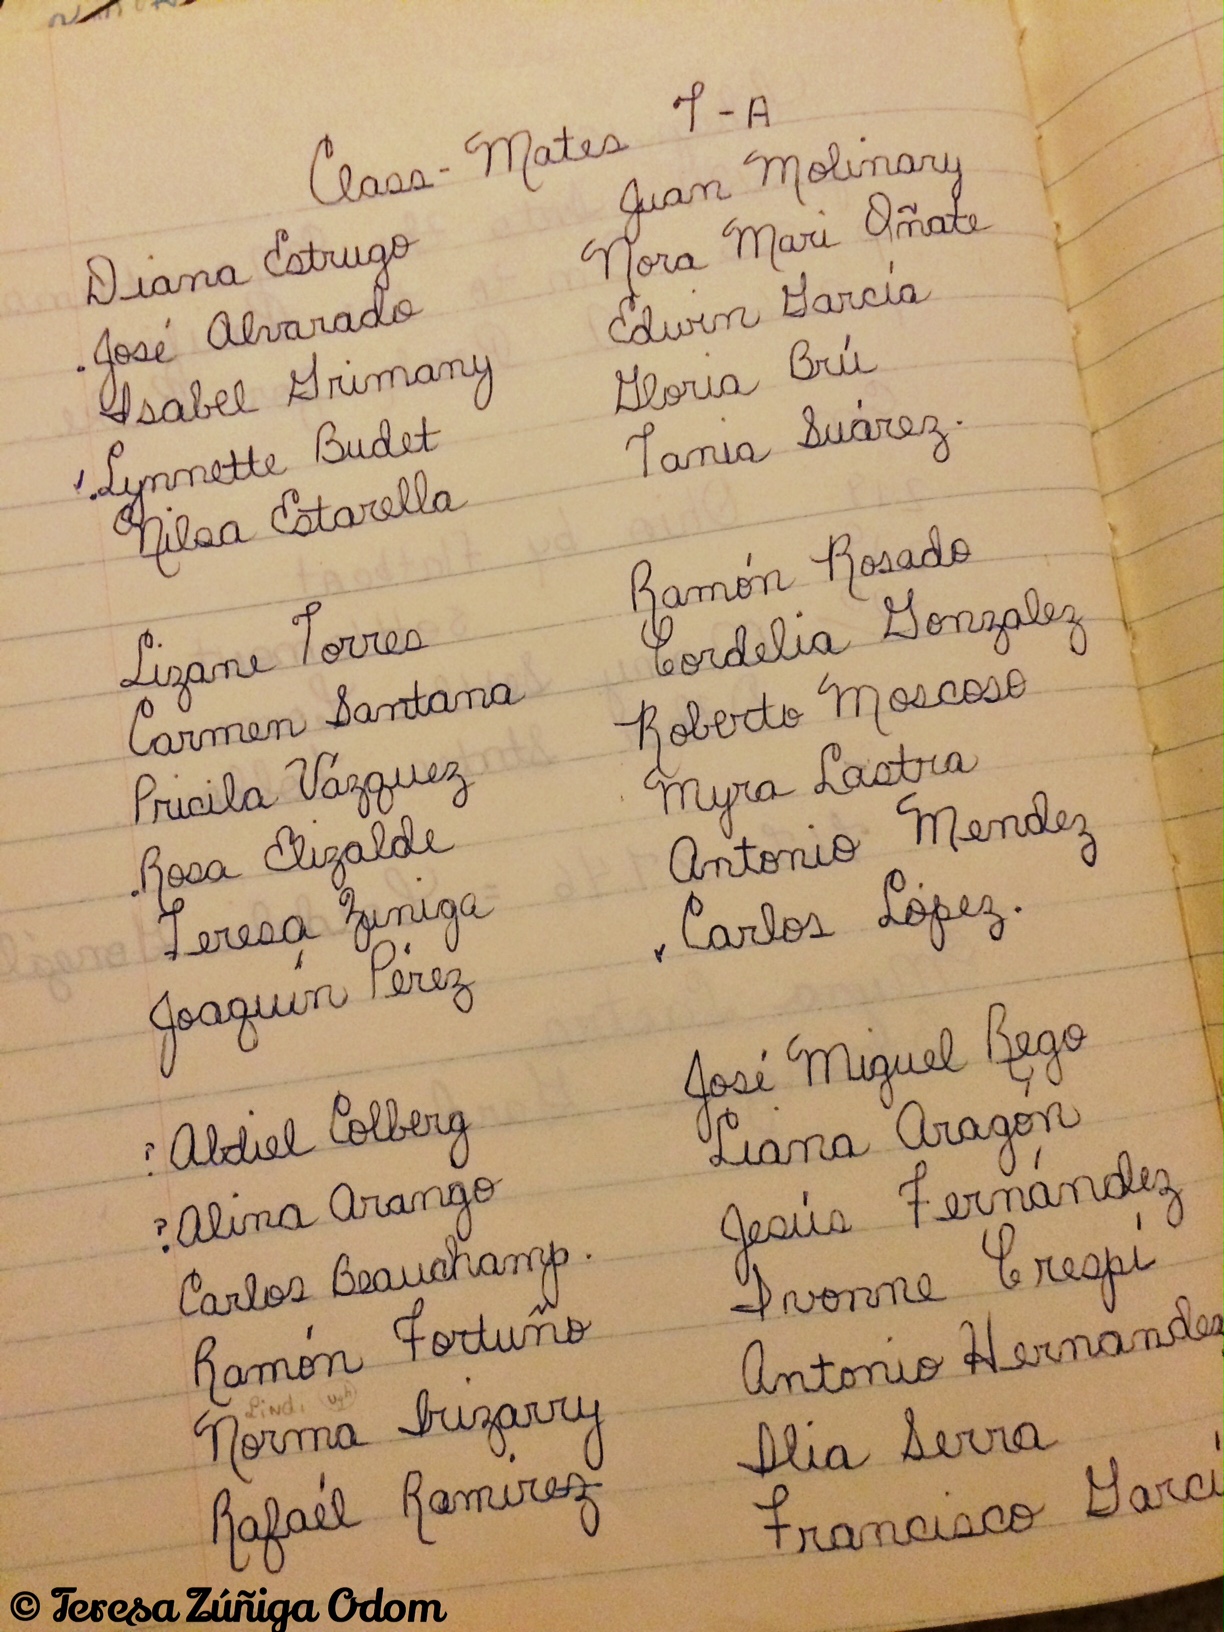 Class-Mates 7-A
Diana Estrugo
José Alvarado
Isabel Grimany
Lynnette Budet
Nilsa Estarella
Lizane Torres
Carmen Santana
Pricila Vázquez
Rosa Elizalde
Teresa Zuniga
Joaquín Pérez
? Abdiel Colberg
? Alina Arango
Carlos Beauchamp.
Ramón Fortuño
Norma Irizarry
Rafaél Ramírez
Juan Molinary
Nora Mari Oñate
Edwin García
Gloria Brú
Tania Suárez.
Ramón Rosado
Cordelia Gonzalez
Roberto Moscoso
Myra Lastra
Antonio Mendez
Carlos López.
José Miguel Rego
Liana Aragón
Jesús Fernández
Ivonne Crespí
Antonio Hernandez
Ilia Serra
Francisco Garcí
© Teresa Zúñiga Odom